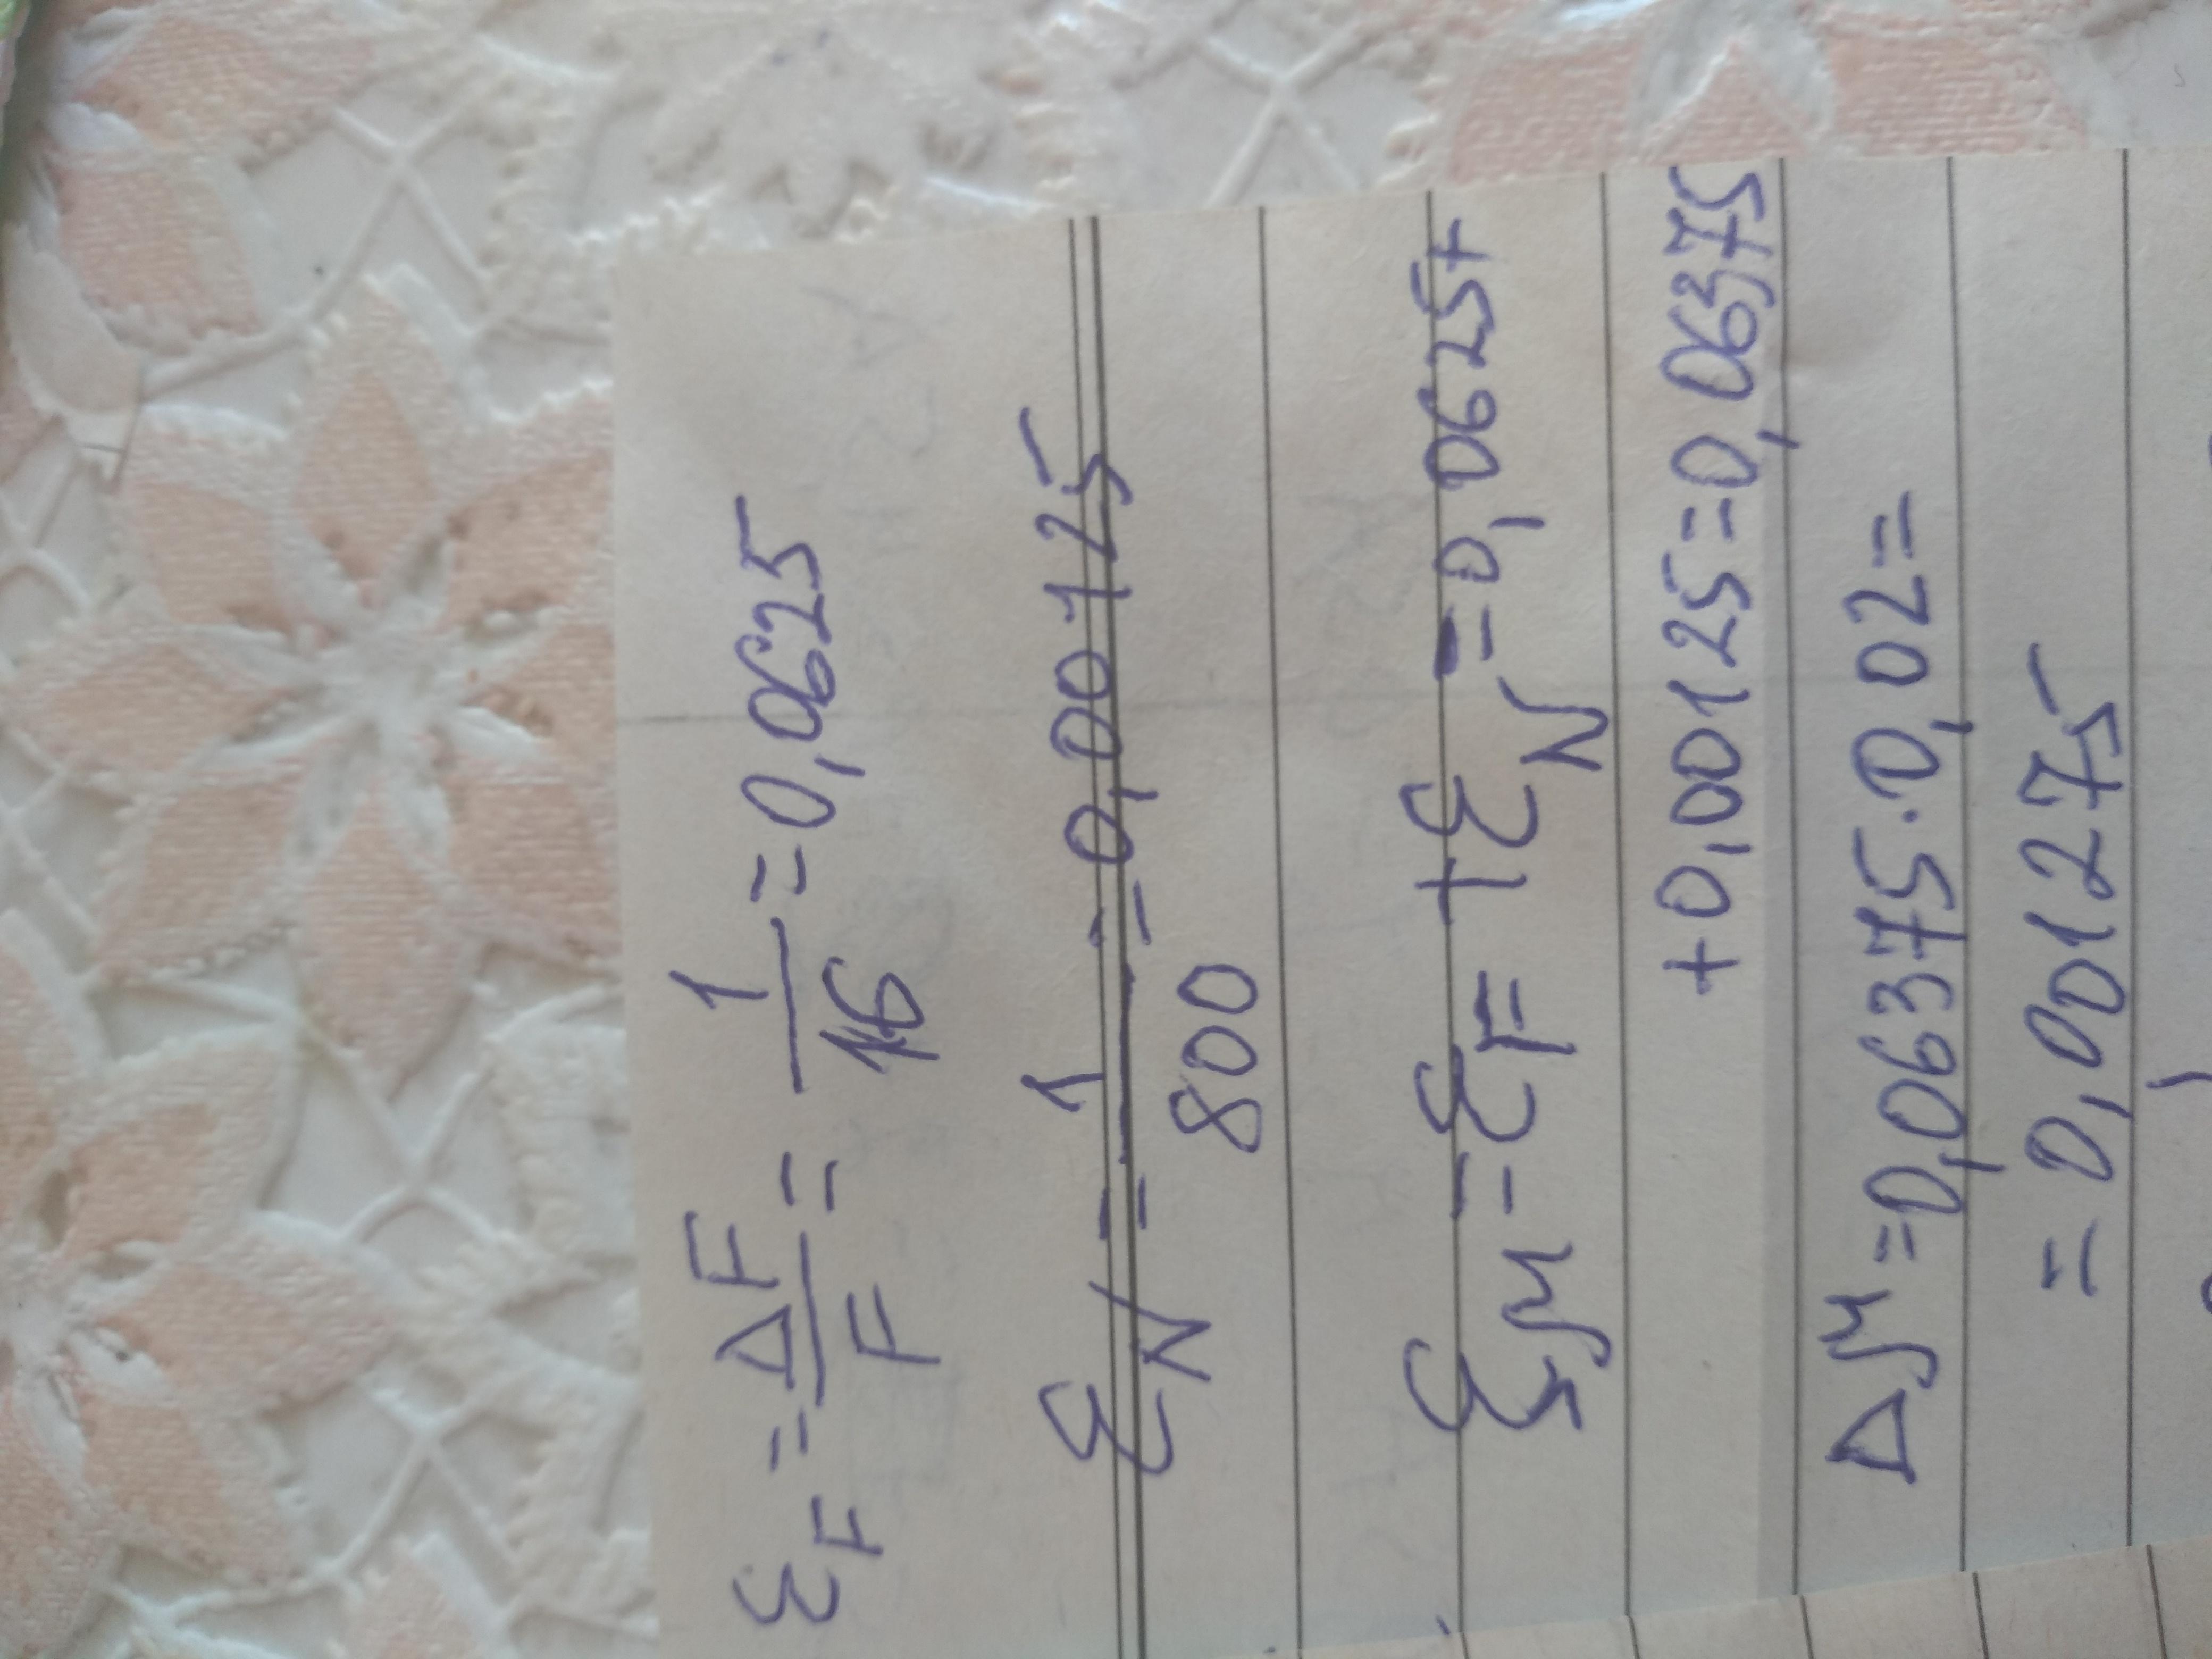 ε_F = ΔF/F = 1/16 = 0,0625
ε_N = 1/800 = 0,00125
ε_μ = ε_F + ε_N = 0,0625+
+0,00125=0,06375
Δμ=0,06375·0,02=
=0,001275